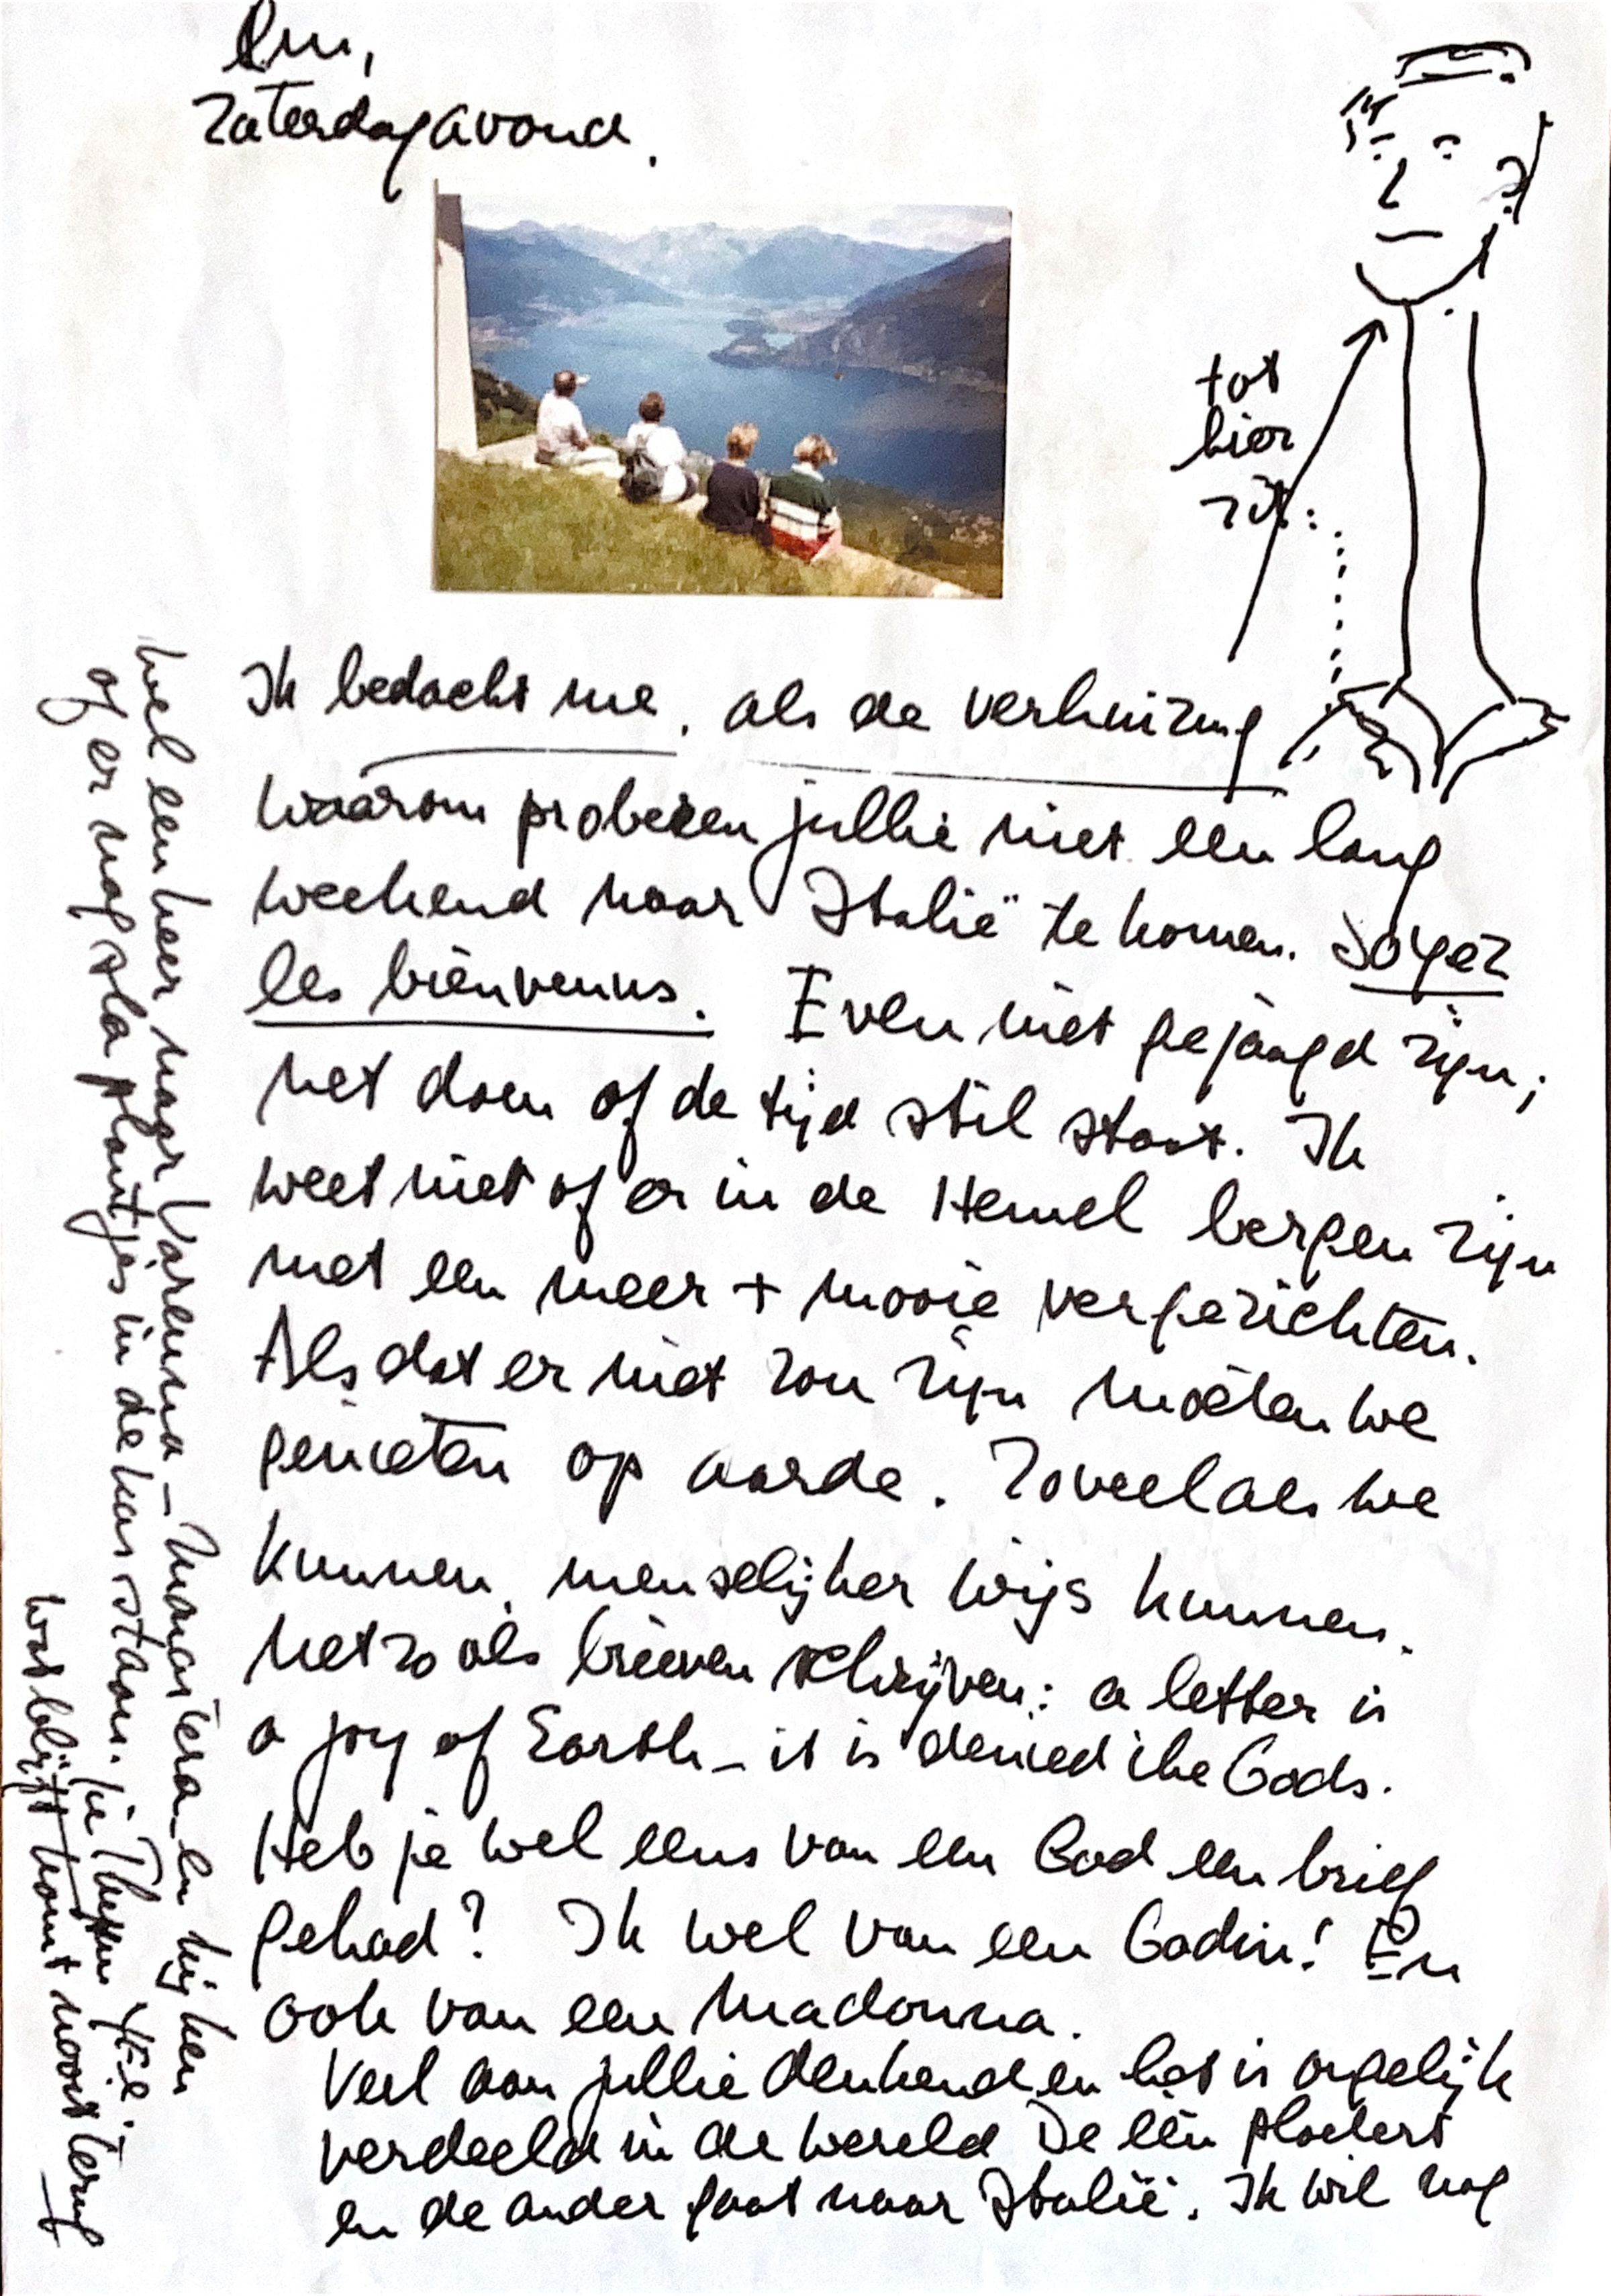 Zaterdagavond.
tot
hier
zit:
Ik bedacht me, als de verhuizing
waarom proberen jullie niet een lang
weekend naar Italië te komen. Soyez
les bienvenus. Even niet gejaagd zijn;
net doen of de tijd stil staat. Ik
weet niet of er in de Hemel bergen zijn
met een meer + mooie vergezichten.
Als dat er niet zou zijn moeten we
genieten op aarde. Zoveel als we
kunnen, menselijker wijs kunnen.
net zo als brieven schrijven: a letter is
a joy of Earth - it is denied the Gods.
Heb je wel eens van een God een brief
gehad? Ik wel van een Godin! En
ook van een Madonna.
Veel aan jullie denkend en het is ongelijk
verdeeld in de wereld De één ploetert
en de ander gaat naar Italië. Ik wil nog
wel een keer naar Varenna - Monastera en kijken
of er nog sla plantjes in de kas staan.
wat blijft komt nooit terug